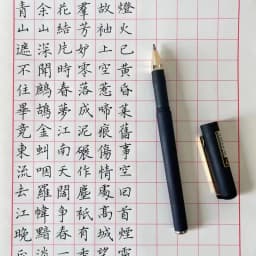 燈火已黃昏 舊事空回首煙
故袖上空惹啼痕傷情處高城望
羣芳妒零落成泥碾作塵祇有香
花結時春夢江南天闊爭春一
余山深聞鷓鴣金虯咽羅幃黯淡
青山遮不住畢竟東流去江晚正